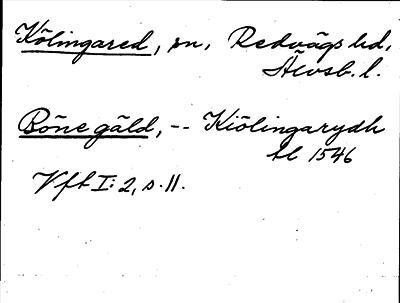 Kölingared, sn, Redvägs hd,
Älvsb. l.
Böne gäld, -- Kiölingarydh
tl 1546
Vft I: 2, s. 11.